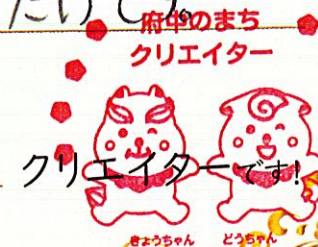 だけです。
府中のまち
クリエイター
クリエイターです!
きょうちゃん
どうちゃん